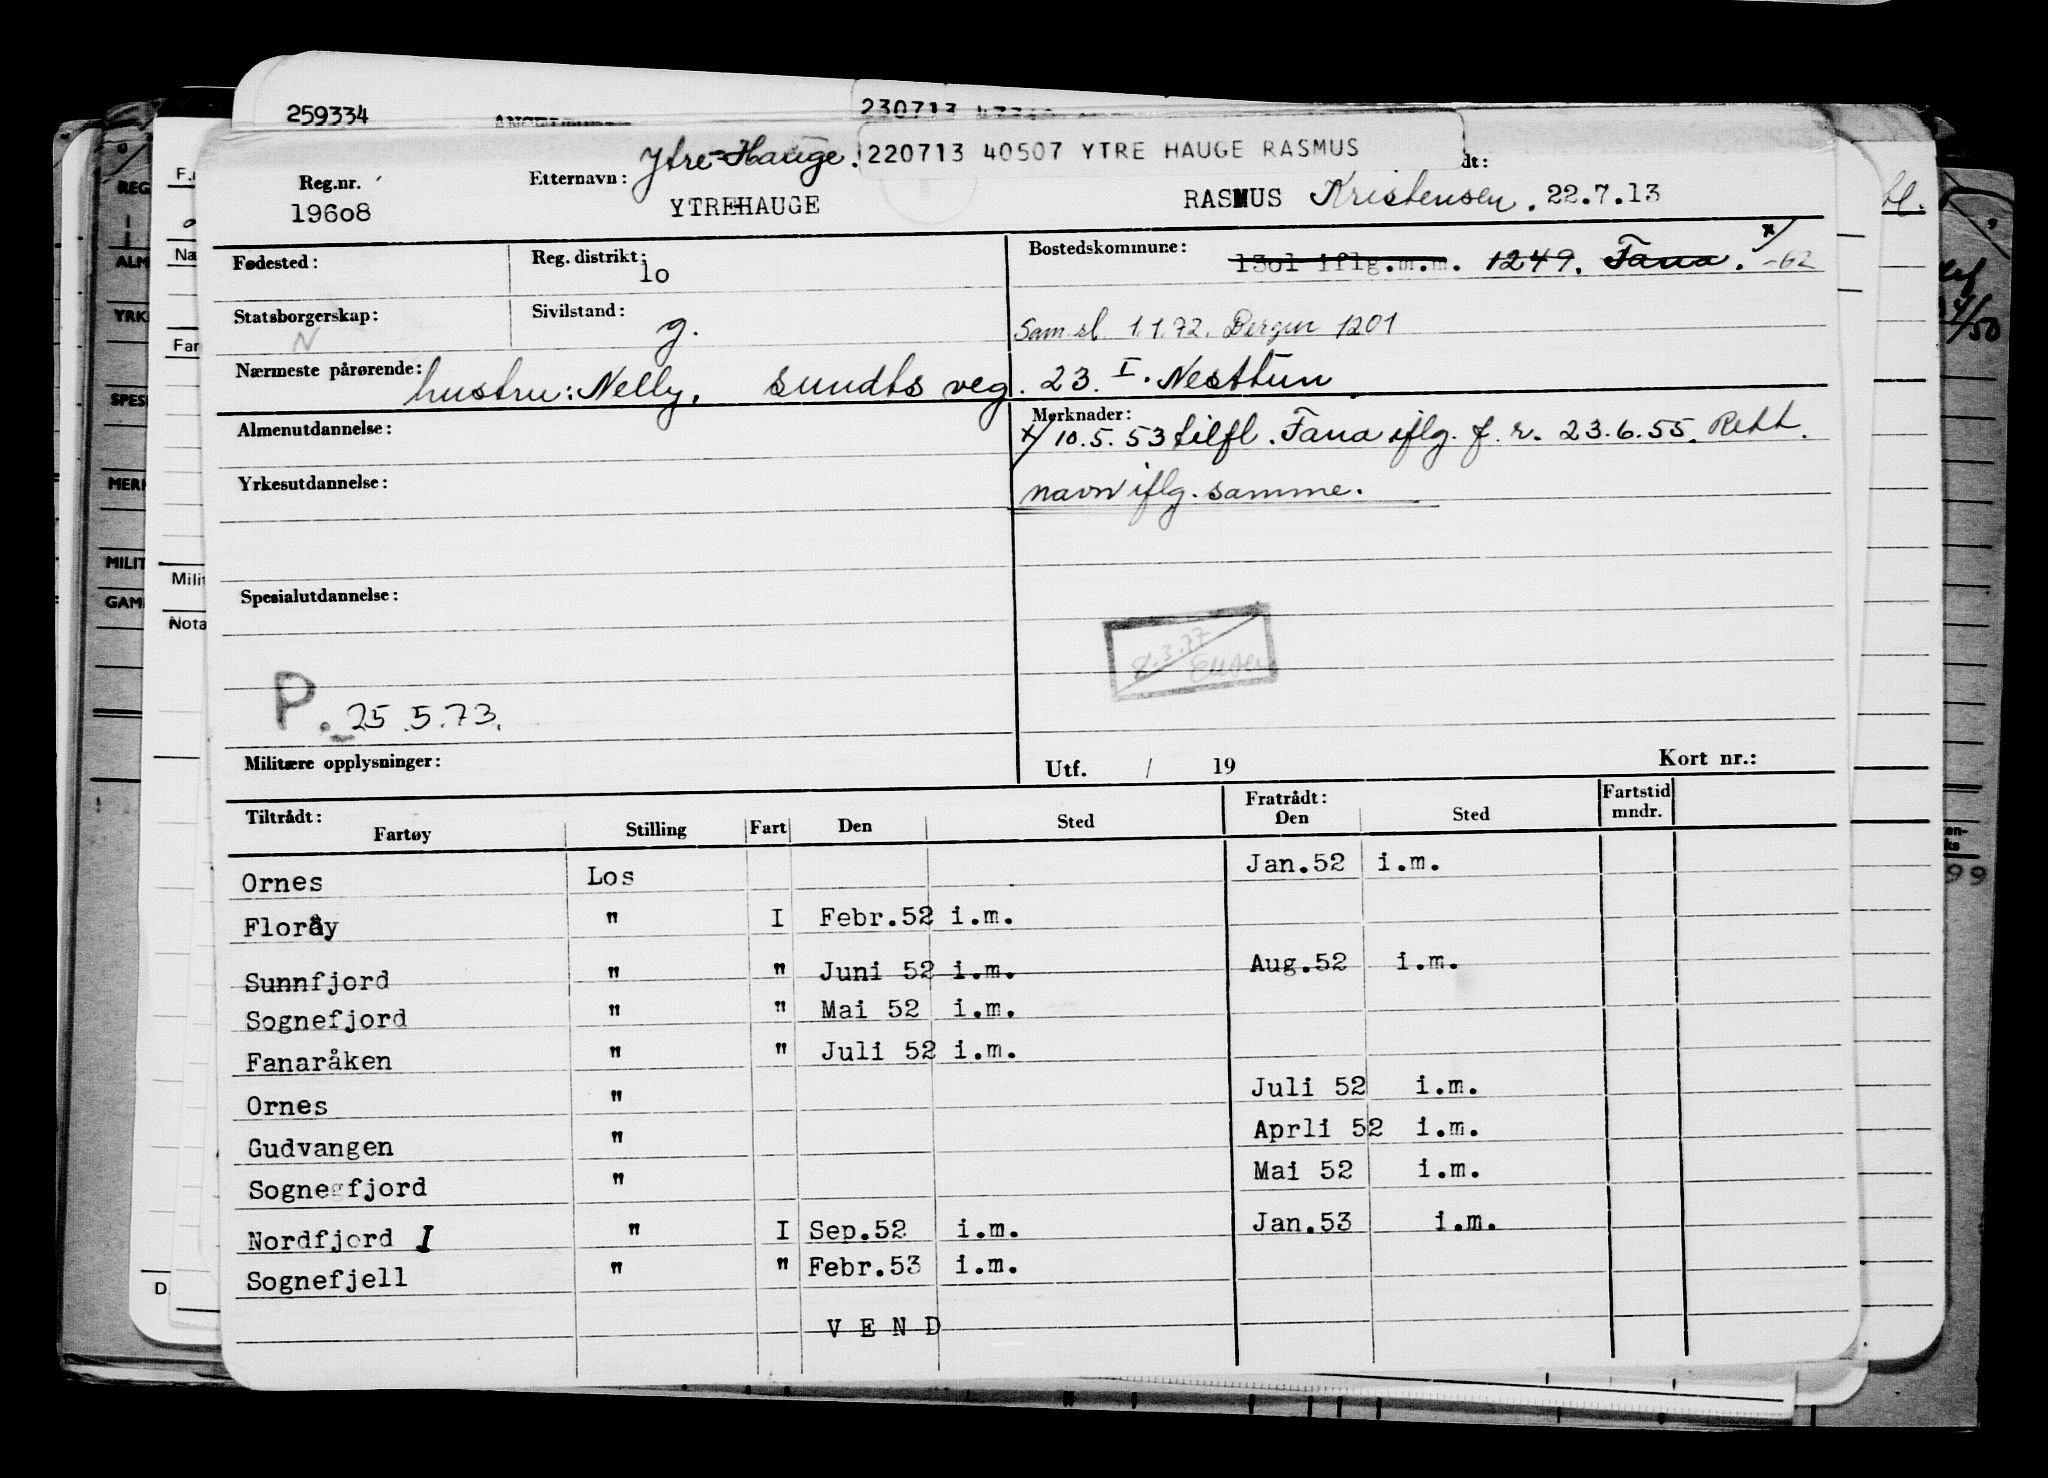 259334
230713
Ytre-Hauge. 220713 40507 YTRE HAUGE RASMUS
Reg.nr. Etternavn: dt:
19608 YTREHAUGE RASMUS Kristensen. 22.7.13
Fødested: Reg. distrikt: Bostedskommune: x/
lo 13ol iflg.m.m. 1249. Fana. -62
Statsborgerskap: Sivilstand:
N g. Sam.sl 1.1.72. Bergen 1201
Nærmeste pårørende: hustru: Nelly, sundts veg. 23. I. Nesttun
Almenutdannelse: Merknader:
x/ 10.5.53 tilfl. Fana iflg. f.r. 23.6.55. Rett.
Yrkesutdannelse: navn iflg. samme.
Spesialutdannelse:
8.3.77
P. 25.5.73.
Militære opplysninger: Utf. / 19 Kort nr.:
Tiltrådt: Fratrådt: Fartstid
Fartøy Stilling Fart Den Sted Den Sted mndr.
Ornes Los Jan.52 i.m.
Florøy " I Febr.52 i.m.
Sunnfjord " " Juni 52 i.m. Aug.52 i.m.
Sognefjord " " Mai 52 i.m.
Fanaråken " " Juli 52 i.m.
Ornes " Juli 52 i.m.
Gudvangen " Aprli 52 i.m.
Sognegfjord " Mai 52 i.m.
Nordfjord I " I Sep.52 i.m. Jan.53 i.m.
Sognefjell " " Febr.53 i.m.
V E N D